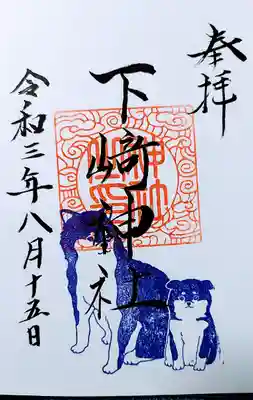 奉拝
下崎神社
令和三年八月十五日